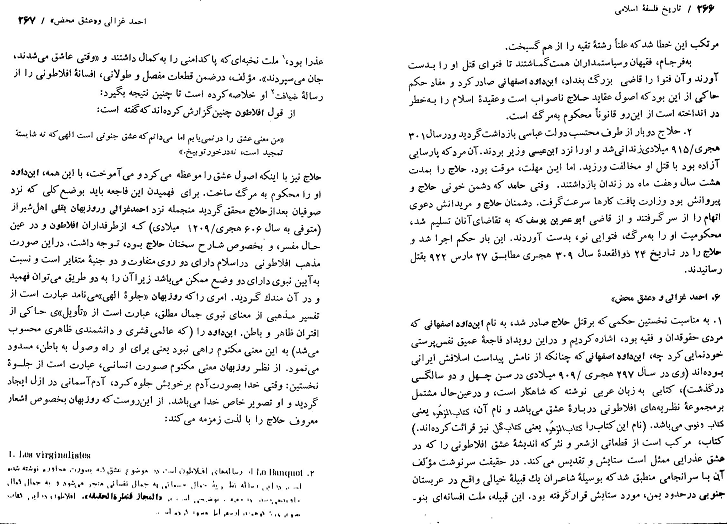 ۲۶۶ / تاریخ فلسفهٔ اسلامی
مرتکب این خطا شد که علناً رشتهٔ تقیه را از هم گسیخت.
به‌فرجام، فقیهان و سیاستمداران همت گماشتند تا فتوای قتل او را بدست
آورند و آن فتوا را قاضی بزرگ بغداد، ابن‌داود اصفهانی صادر کرد و مفاد حکم
حاکی از این بود که اصول عقاید حلاج ناصواب است و عقیدهٔ اسلام را به‌خطر
در انداخته است از این‌رو قانوناً محکوم به‌مرگ است.
۲. حلاج دوبار از طرف محتسب دولت عباسی بازداشت گردید و در سال ۳۰۱
هجری/۹۱۵ میلادی زندانی شد و او را نزد ابن‌عیسی وزیر بردند. آن مرد که پارسایی
آزاده بود با قتل او مخالفت ورزید. اما این مهلت، موقت بود. حلاج را بمدت
هشت سال و هفت ماه در زندان بازداشتند. وقتی حامد که دشمن خونی حلاج و
پیروانش بود وزارت یافت کارها سرعت گرفت. دشمنان حلاج و مریدانش دعوی
اتهام را از سر گرفتند و از قاضی ابوعمربن یوسف که به تقاضای آنان تسلیم شد،
محکومیت او را به‌مرگ، فتوایی نو، بدست آوردند. این بار حکم اجرا شد و
حلاج را در تاریخ ۲۴ ذوالقعدهٔ سال ۳۰۹ هجری مطابق ۲۷ مارس ۹۲۲ بقتل
رسانیدند.
۶. احمد غزالی و «عشق محض»
۱. به مناسبت نخستین حکمی که بر قتل حلاج صادر شد، به نام ابن‌داود اصفهانی که
مردی حقوقدان و فقیه بود، اشاره کردیم و در این رویداد فاجعهٔ عمیق نفس‌پرستی
خودنمایی کرد چه، ابن‌داود اصفهانی که چنانکه از نامش پیداست اسلافش ایرانی
بوده‌اند (وی در سال ۲۹۷ هجری /۹۰۹ میلادی در سن چهل و دو سالگی
درگذشت)، کتابی به زبان عربی نوشته که شاهکار است، و در عین‌حال مشتمل
بر مجموعهٔ نظریه‌های افلاطونی دربارهٔ عشق می‌باشد و نام آن، کتاب‌الزهره یعنی
کتاب ونوس می‌باشد. (نام این کتاب را کتاب‌الزهره یعنی کتاب گل نیز قرائت کرده‌اند.)
کتاب، مرکب است از قطعاتی از شعر و نثر که اندیشهٔ عشق افلاطونی را که در
عشق عذرایی ممثل است ستایش و تقدیس می‌کند. در حقیقت سرنوشت مؤلف
آن با سرانجامی منطبق شد که بوسیلهٔ شاعران یک قبیلهٔ خیالی واقع در عربستان
جنوبی در حدود یمن، مورد ستایش قرار گرفته بود. این قبیله، ملت افسانه‌ای بنو-
احمد غزالی و «عشق محض» / ۲۶۷
عذرا بود،۱ ملت نخبه‌ای که پاکدامنی را به کمال داشتند و «وقتی عاشق می‌شدند،
جان می‌سپردند». مؤلف، درضمن قطعات مفصل و طولانی، افسانهٔ افلاطونی را از
رسالهٔ ضیافت۲ او خلاصه کرده است تا چنین نتیجه بگیرد:
از قول افلاطون چنین گزارش کرده‌اند که گفته است:
«من معنی عشق را در نمی‌یابم اما می‌دانم که عشق جنونی است الهی که نه شایستهٔ
تمجید است، نه در خور توبیخ.»
حلاج نیز با اینکه اصول عشق را موعظه می‌کرد و می‌آموخت، با این همه، ابن‌داود
او را محکوم به مرگ ساخت. برای فهمیدن این فاجعه باید بوضع کلی که نزد
صوفیان بعد از حلاج محقق گردید منجمله نزد احمد غزالی و روزبهان بقلی اهل شیراز
(متوفی به سال ۶۰۶ هجری/۱۲۰۹ میلادی) که از طرفداران افلاطون و در عین
حال مفسر، و بخصوص شارح سخنان حلاج بود، توجه داشت. در این صورت
مذهب افلاطونی در اسلام دارای دو روی متفاوت و دو جنبهٔ متغایر است و نسبت
به آیین نبوی دارای دو وضع ممکن می‌باشد زیرا آن را به دو طریق می‌توان فهمید
و در آن مندک گردید. امری را که روزبهان «جلوهٔ الهی» می‌نامد عبارت است از
تفسیر مذهبی از معنای نبوی جمال مطلق، عبارت است از «تأویل»ی حاکی از
اقتران ظاهر و باطن. ابن‌داود را (که عالمی قشری و دانشمندی ظاهری محسوب
می‌شد) به این معنی مکتوم راهی نبود یعنی برای او راه وصول به باطن، مسدود
می‌نمود. از نظر روزبهان معنی مکتوم صورت انسانی، عبارت است از جلوهٔ
نخستین: وقتی خدا بصورت آدم برخویش جلوه کرد، آدم آسمانی در ازل ایجاد
گردید و او تصویر خاص خدا می‌باشد. از این‌روست که روزبهان بخصوص اشعار
معروف حلاج را با لذت زمزمه می‌کند:
1. Les virginalistes
۲. Le Banquot از رساله‌های افلاطون است در موضوع عشق که بصورت محاوره نوشته شده